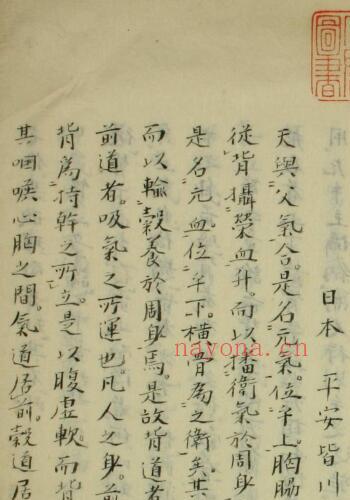 圖書
日本 平安皆川
天與父氣合是名元氣位乎上胸脇
從背攝榮血升而以播衛氣於周身
是名元血位乎下横骨為之衛矣其
而以輸穀養於周身焉是故背道者
前道者吸氣之所運也凡人之身前
背為持幹之所立是以腹虚軟而背
其咽喉心胸之間氣道居前穀道居
nayona.cn